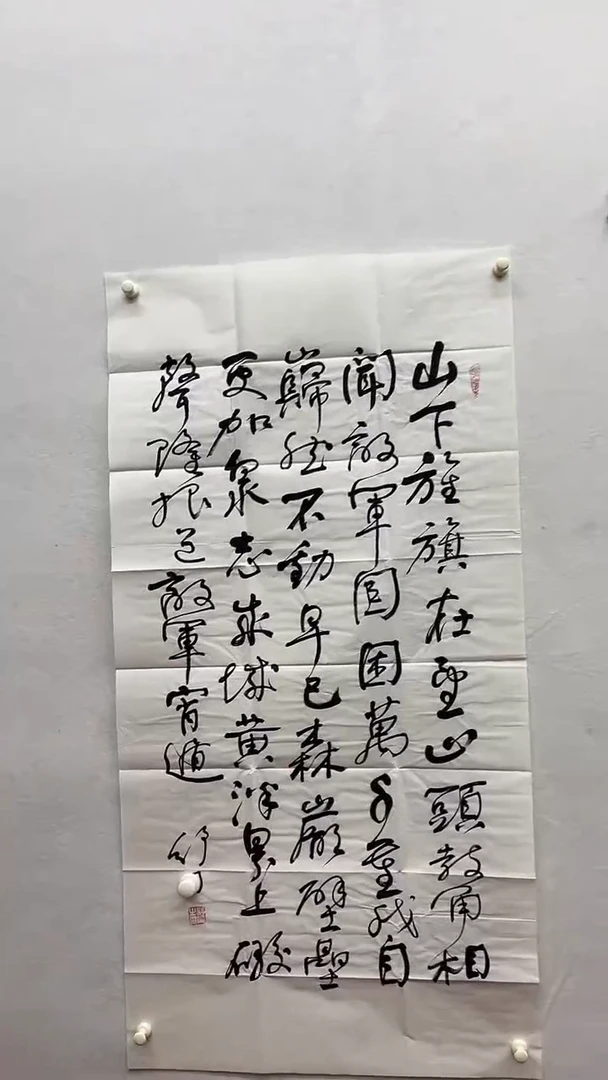 山下旌旗在望山頭鼓角相
聞敵軍圍困萬千重我自
巋然不動早已森嚴壁壘
更加眾志成城黃洋界上礮
聲隆報道敵軍宵遁